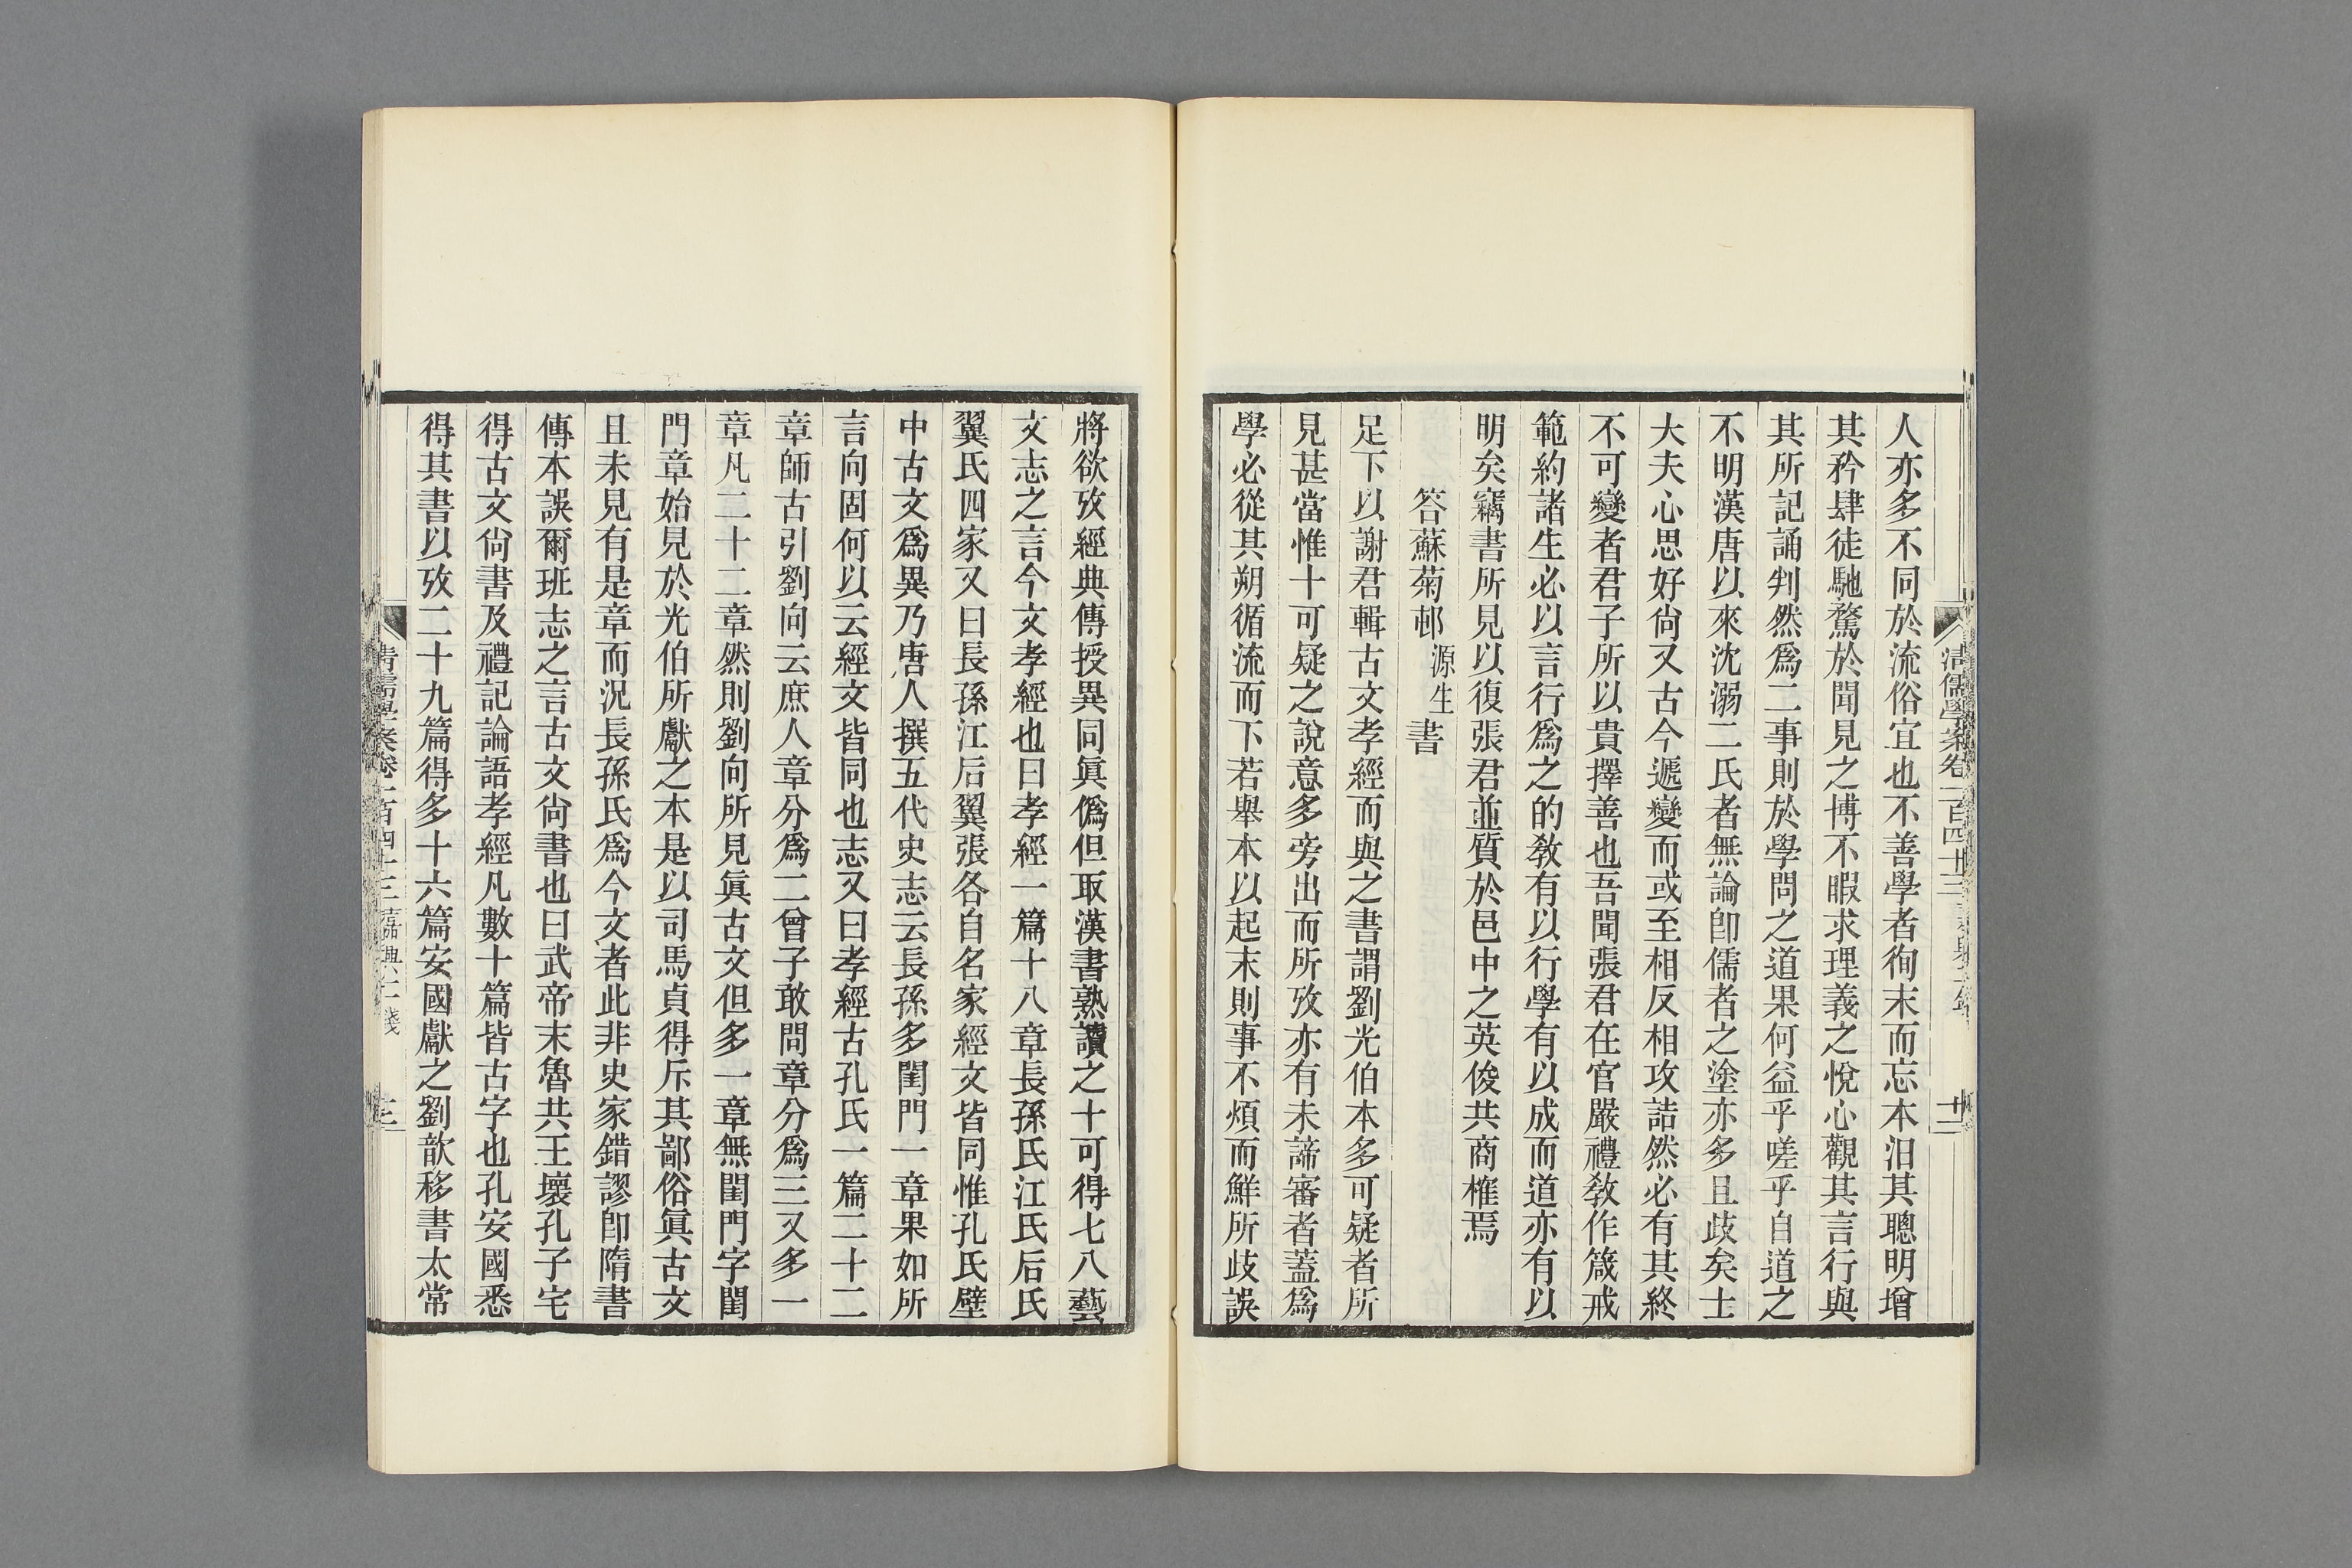 人亦多不同於流俗宜也不善學者徇末而忘本汨其聰明增
其矜肆徒馳騖於聞見之博不暇求理義之悅心觀其言行與
其所記誦判然爲二事則於學問之道果何益乎嗟乎自道之
不明漢唐以來沈溺二氏者無論卽儒者之塗亦多且歧矣士
大夫心思好尙又古今遞變而或至相反相攻詰然必有其終
不可變者君子所以貴擇善也吾聞張君在官嚴禮敎作箴戒
範約諸生必以言行爲之的敎有以行學有以成而道亦有以
明矣竊書所見以復張君並質於邑中之英俊共商榷焉
答蘇菊邨源生書
足下以謝君輯古文孝經而與之書謂劉光伯本多可疑者所
見甚當惟十可疑之說意多旁出而所攷亦有未諦審者蓋爲
學必從其朔循流而下若舉本以起末則事不煩而鮮所歧誤
清儒學案卷一百四十三
十二
將欲攷經典傳授異同眞僞但取漢書熟讀之十可得七八藝
文志之言今文孝經也曰孝經一篇十八章長孫氏江氏后氏
翼氏四家又曰長孫江后翼張各自名家經文皆同惟孔氏壁
中古文爲異乃唐人撰五代史志云長孫多閨門一章果如所
言向固何以云經文皆同也志又曰孝經古孔氏一篇二十二
章師古引劉向云庶人章分爲二曾子敢問章分爲三又多一
章凡二十二章然則劉向所見眞古文但多一章無閨門字閨
門章始見於光伯所獻之本是以司馬貞得斥其鄙俗眞古文
且未見有是章而況長孫氏爲今文者此非史家錯謬卽隋書
傳本誤爾班志之言古文尙書也曰武帝末魯共王壞孔子宅
得古文尙書及禮記論語孝經凡數十篇皆古字也孔安國悉
得其書以攷二十九篇得多十六篇安國獻之劉歆移書太常
清儒學案卷一百四十三 嘉興二錢